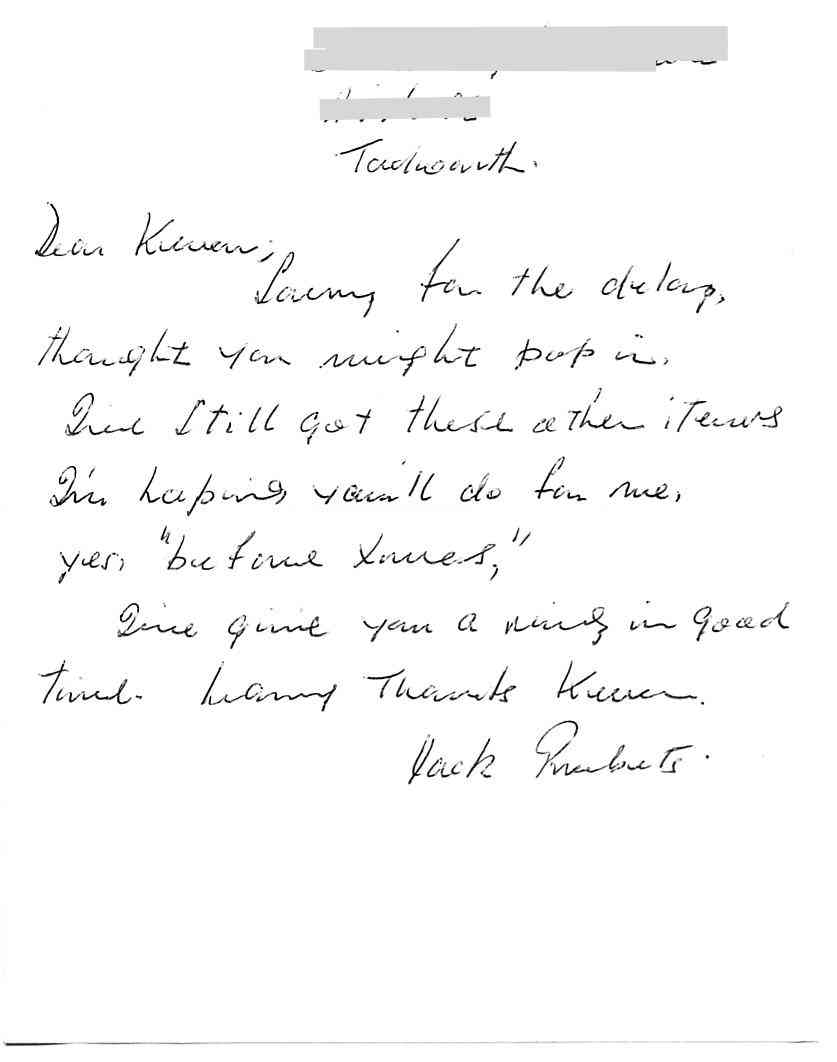 Tadworth.
Dear Kieren,
Sorry for the delay,
thought you might pop in.
I've still got these other items
I'm hoping you'll do for me,
yes, "before Xmas,"
I've give you a ring in good
time. Many Thanks Kieren.
Jack Roberts.